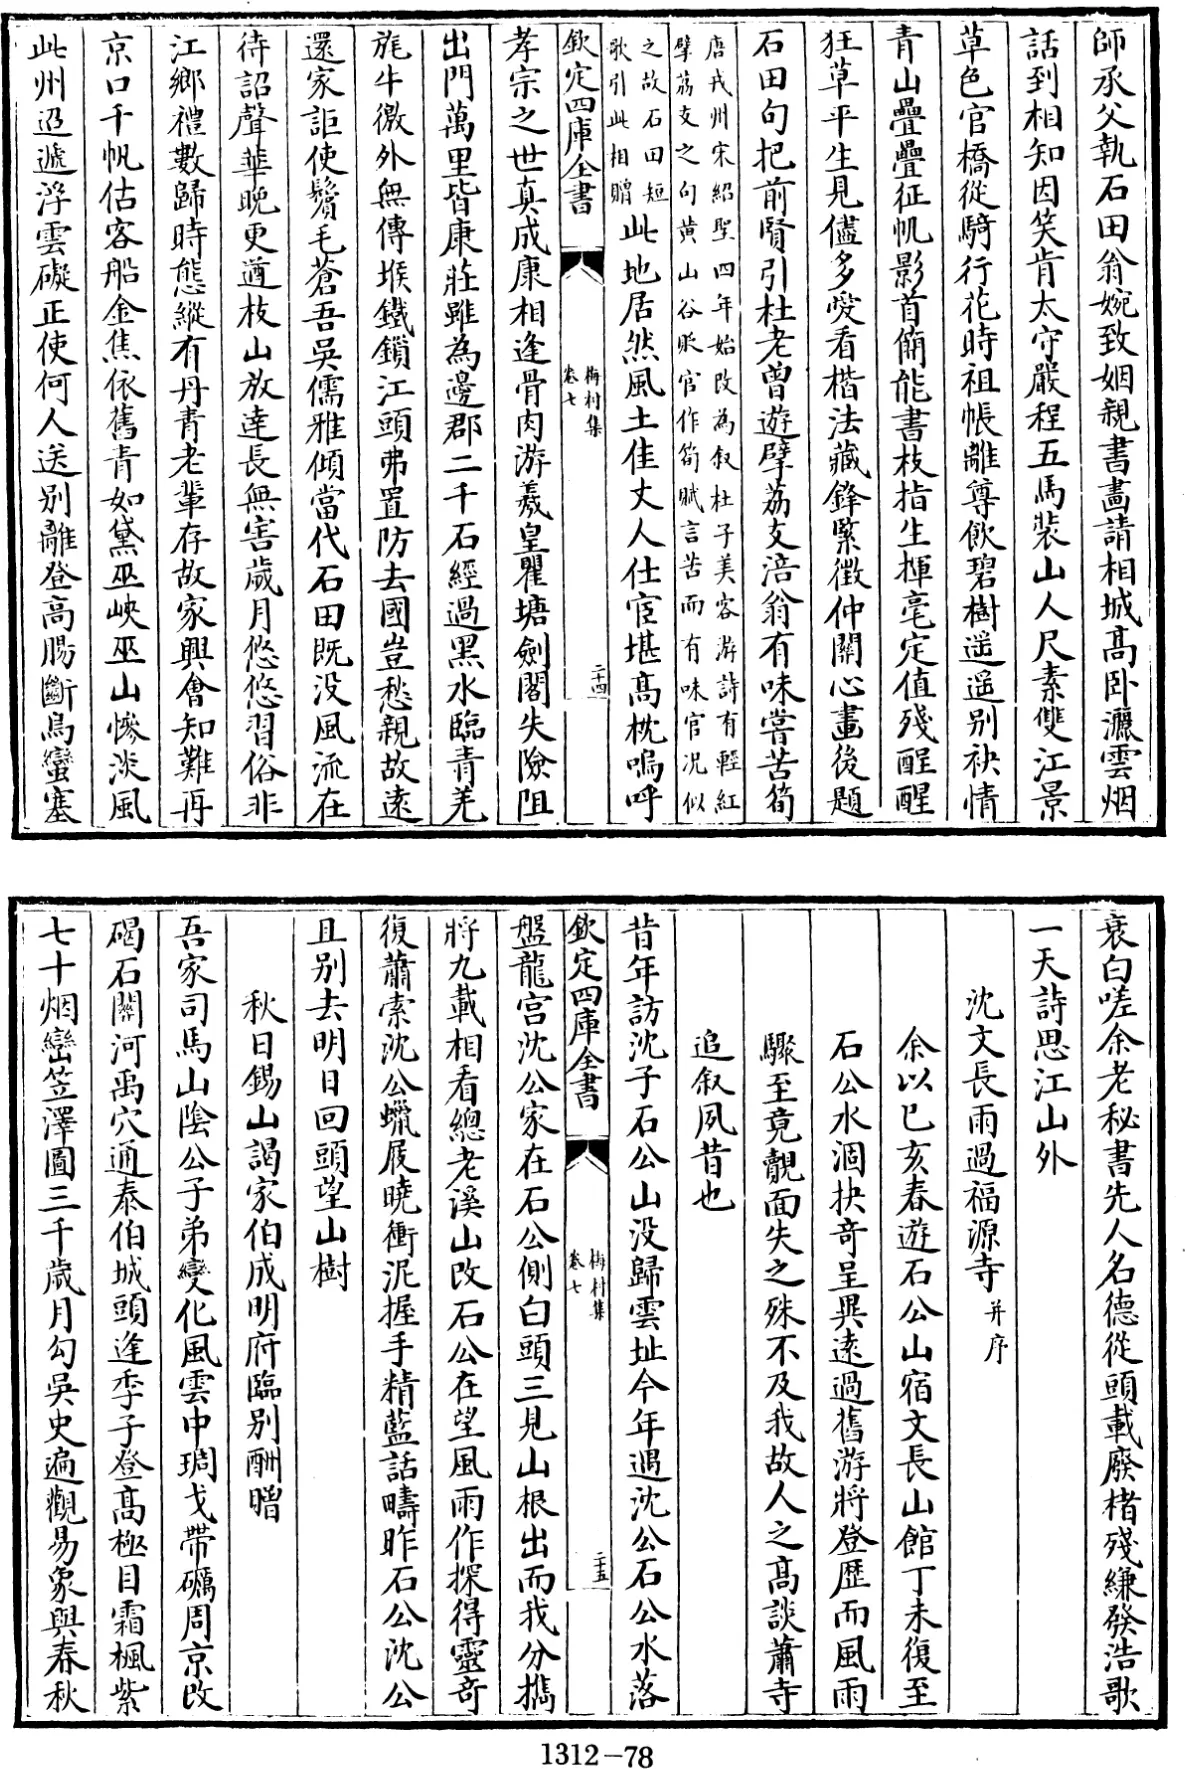 師承父執石田翁婉致姻親書畫請相城高卧灑雲烟
話到相知因笑肯太守嚴程五馬裝山人尺素雙江景
草色官橋從騎行花時祖帳離尊飲碧樹遥遥别袂情
青山疊疊征帆影首簡能書枝指生揮毫定值殘酲醒
狂草平生見儘多愛看楷法藏鋒緊徵仲關心畫後題
石田句把前賢引杜老曾遊擘荔支涪翁有味嘗苦筍
唐戎州宋紹聖四年始改為叙杜子美客游詩有輕紅
擘荔支之句黄山谷貶官作筍賦言苦而有味官况似
之故石田短
歌引此相贈
此地居然風土佳丈人仕宦堪高枕嗚呼
欽定四庫全書
梅村集
卷七
二十四
孝宗之世真成康相逢骨肉游羲皇瞿塘劍閣失險阻
出門萬里皆康莊雖為邊郡二千石經過黑水臨青羌
旄牛徼外無傳堠鐵鎖江頭弗置防去國豈愁親故遠
還家詎使鬢毛蒼吾吳儒雅傾當代石田既没風流在
待詔聲華晚更遒枝山放達長無害歲月悠悠習俗非
江鄉禮數歸時態縱有丹青老輩存故家興會知難再
京口千帆估客船金焦依舊青如黛巫峽巫山慘淡風
此州迢遞浮雲礙正使何人送别離登高腸斷烏蠻塞
衰白嗟余老秘書先人名德從頭載廢楮殘縑發浩歌
一天詩思江山外
沈文長雨過福源寺并序
余以已亥春遊石公山宿文長山館丁未復至
石公水涸抉奇呈異遠過舊游將登歷而風雨
驟至竟覿面失之殊不及我故人之高談蕭寺
追叙夙昔也
昔年訪沈子石公山没歸雲址今年遇沈公石公水落
欽定四庫全書
梅村集
卷七
二十五
盤龍宫沈公家在石公側白頭三見山根出而我分擕
將九載相看總老溪山改石公在望風雨作探得靈奇
復蕭索沈公蠟屐曉衝泥握手精藍話疇昨石公沈公
且别去明日回頭望山樹
秋日錫山謁家伯成明府臨别酬贈
吾家司馬山陰公子弟變化風雲中琱戈帶礪周京改
碣石關河禹穴通泰伯城頭逢季子登高極目霜楓紫
七十烟巒笠澤圖三千歲月勾吳史遍觀易象與春秋
1312-78